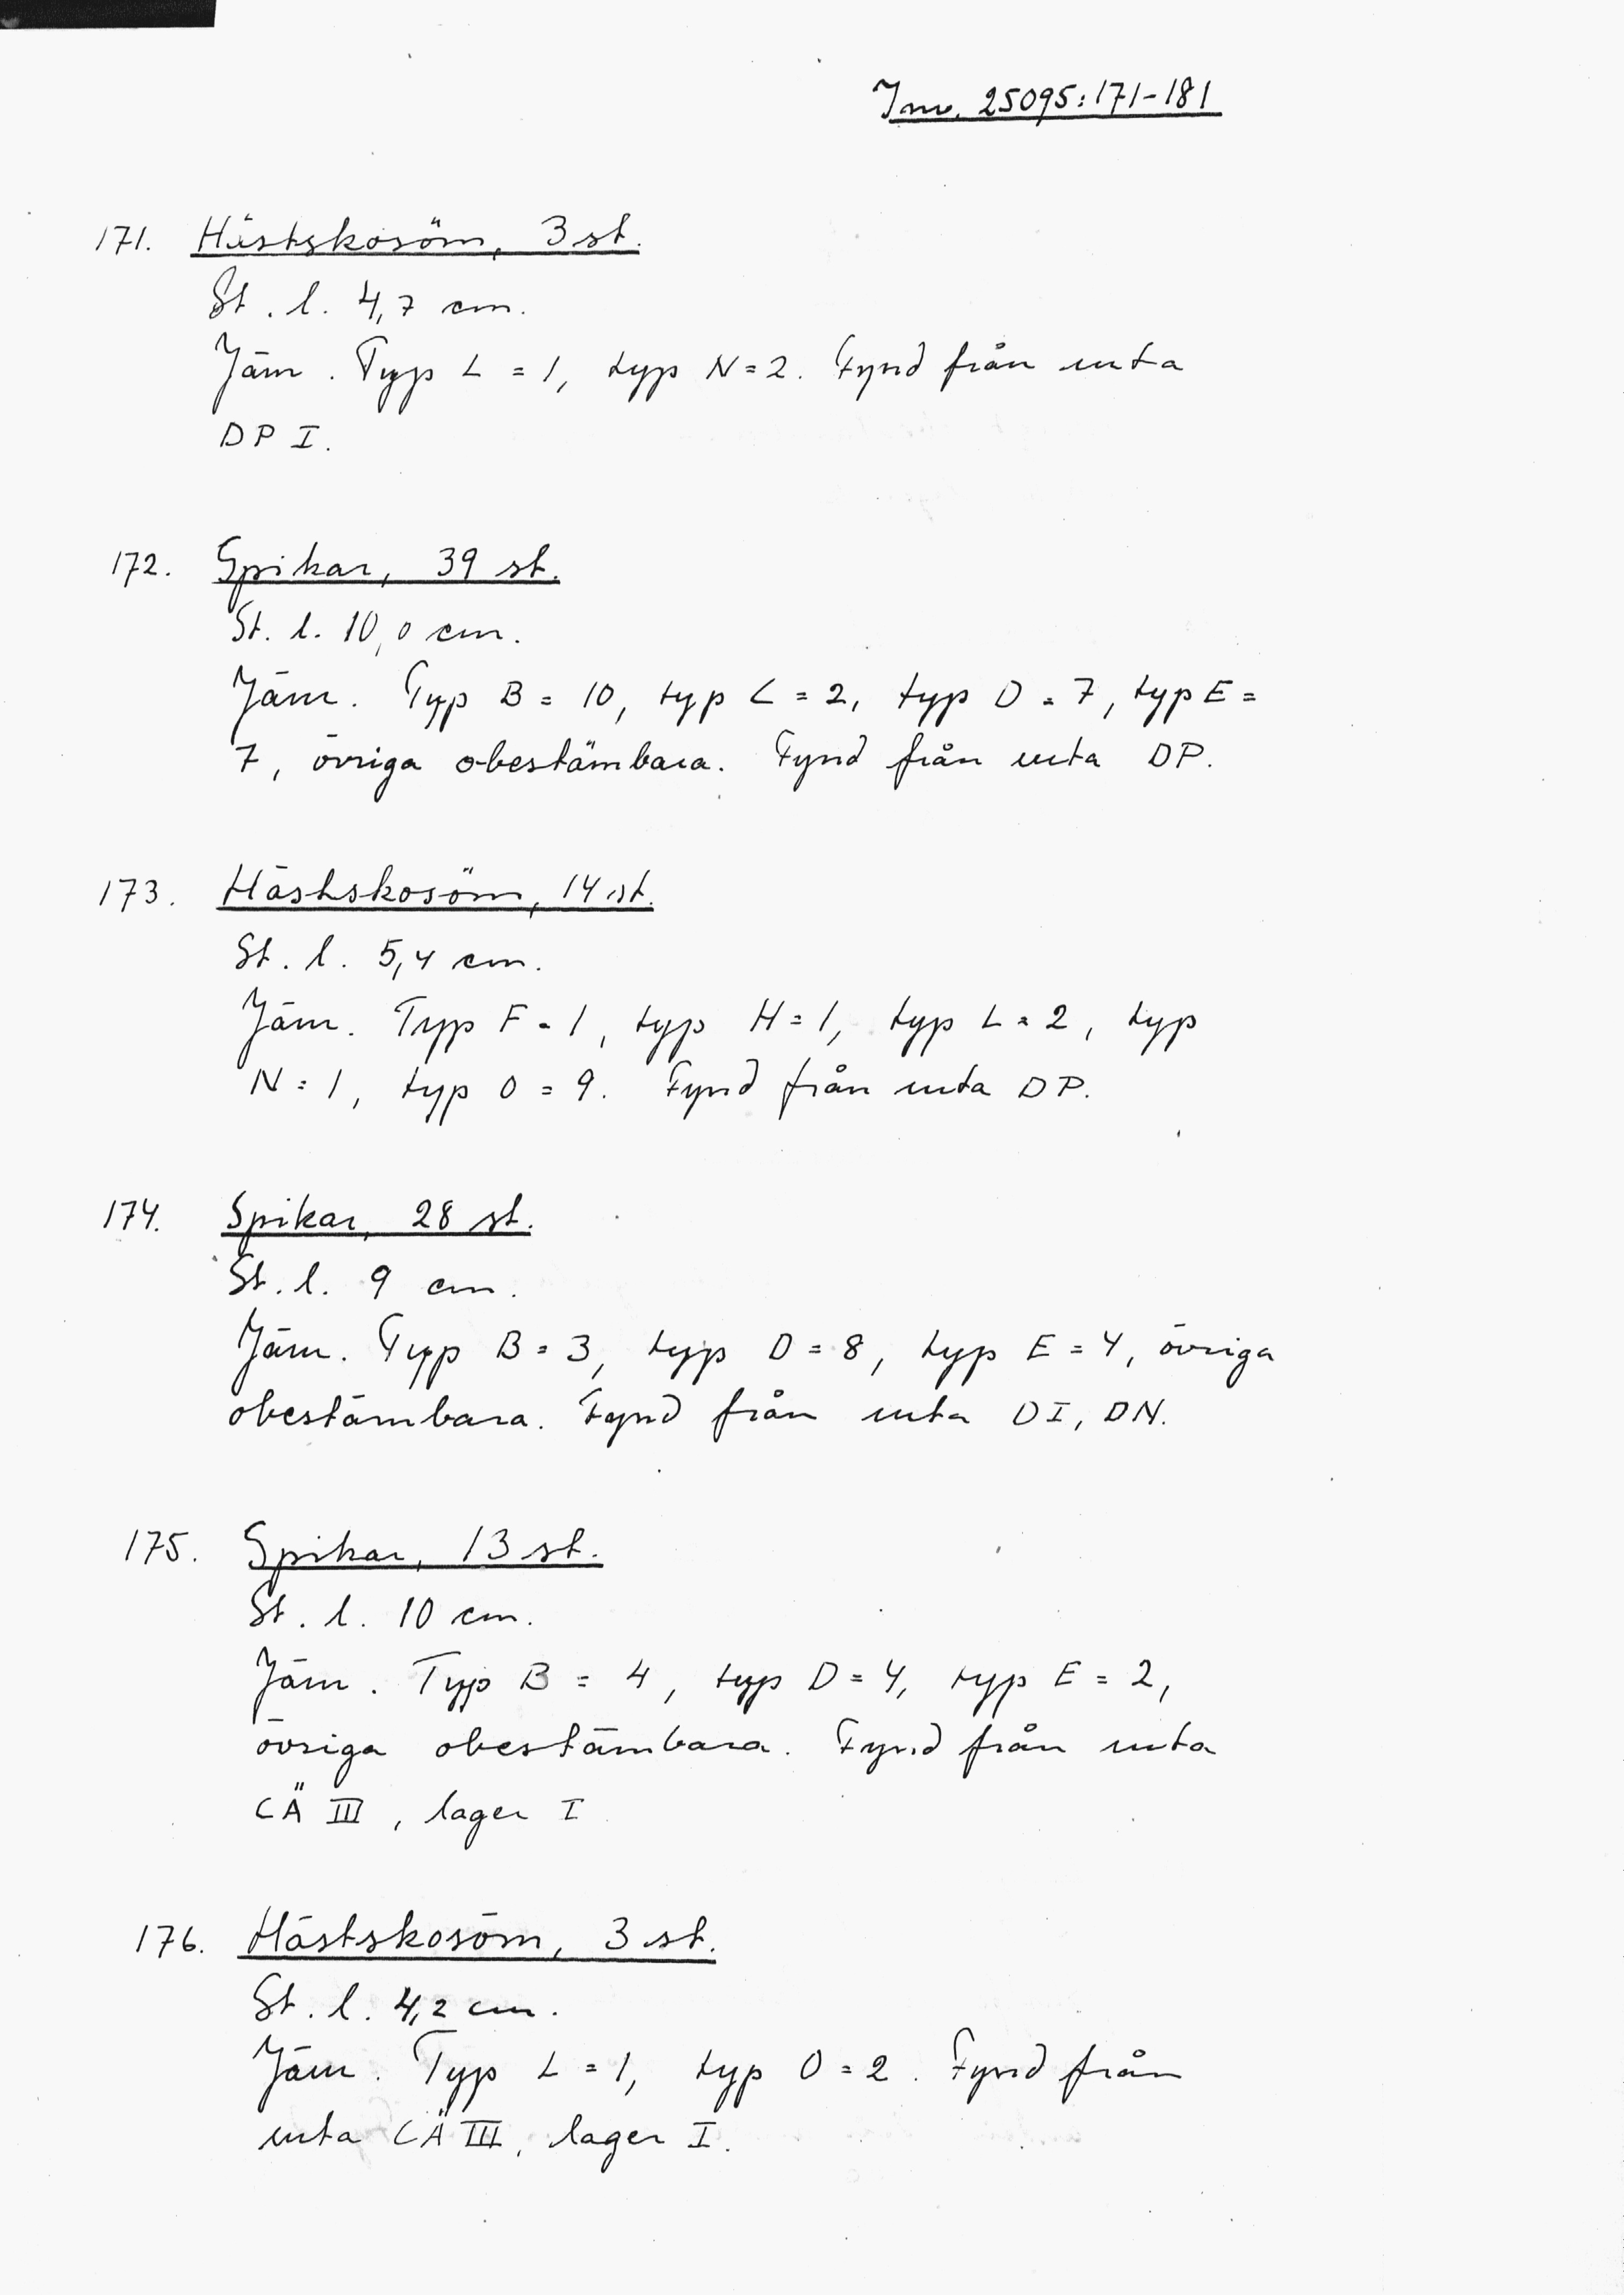 Inv. 25095:171-181
171. Hästskosöm, 3 st.
St. l. 4,7 cm.
Järn. Typ L = 1, typ N = 2. Fynd från ruta
DP I.
172. Spikar, 39 st.
St. l. 10,0 cm.
Järn. Typ B = 10, typ C = 2, typ D = 7, typ E =
7, övriga obestämbara. Fynd från ruta DP.
173. Hästskosöm, 14 st.
St. l. 5,4 cm.
Järn. Typ F = 1, typ H = 1, typ L = 2, typ
N = 1, typ O = 9. Fynd från ruta DP.
174. Spikar, 28 st.
St. l. 9 cm.
Järn. Typ B = 3, typ D = 8, typ E = 4, övriga
obestämbara. Fynd från ruta DI, DN.
175. Spikar, 13 st.
St. l. 10 cm.
Järn. Typ B = 4, typ D = 4, typ E = 2,
övriga obestämbara. Fynd från ruta
CÄ III, lager I
176. Hästskosöm, 3 st.
St. l. 4,2 cm.
Järn. Typ L = 1, typ O = 2. Fynd från
ruta CÄ III, lager I.